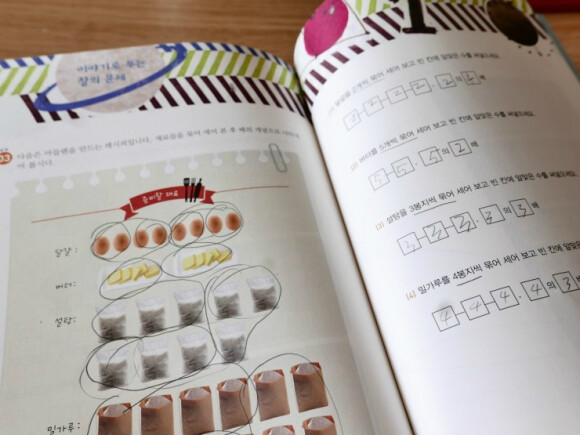 이야기로 푸는
길의 문제
33 다음은 마들렌을 만드는 레시피입니다. 재료들을 묶어 세어 본 후 배의 개념으로
어 봅시다.
준비할 재료
달걀:
버터:
설탕:
밀가루:
(1) 달걀을 2개씩 묶어 세어 보고 빈 칸에 알맞은 수를 써넣으세요.
2 2 2 의 배
(2) 버터를 5개씩 묶어 세어 보고 빈 칸에 알맞은 수를 써넣으세요.
5 5 . 5의 2 배
(3) 설탕을 3봉지씩 묶어 세어 보고 빈 칸에 알맞은 수를 써넣으세요.
3 3 3 . 3 의 3 배
(4) 밀가루를 4봉지씩 묶어 세어 보고 빈 칸에 알맞은
4 4 4 . 4 의 3 배